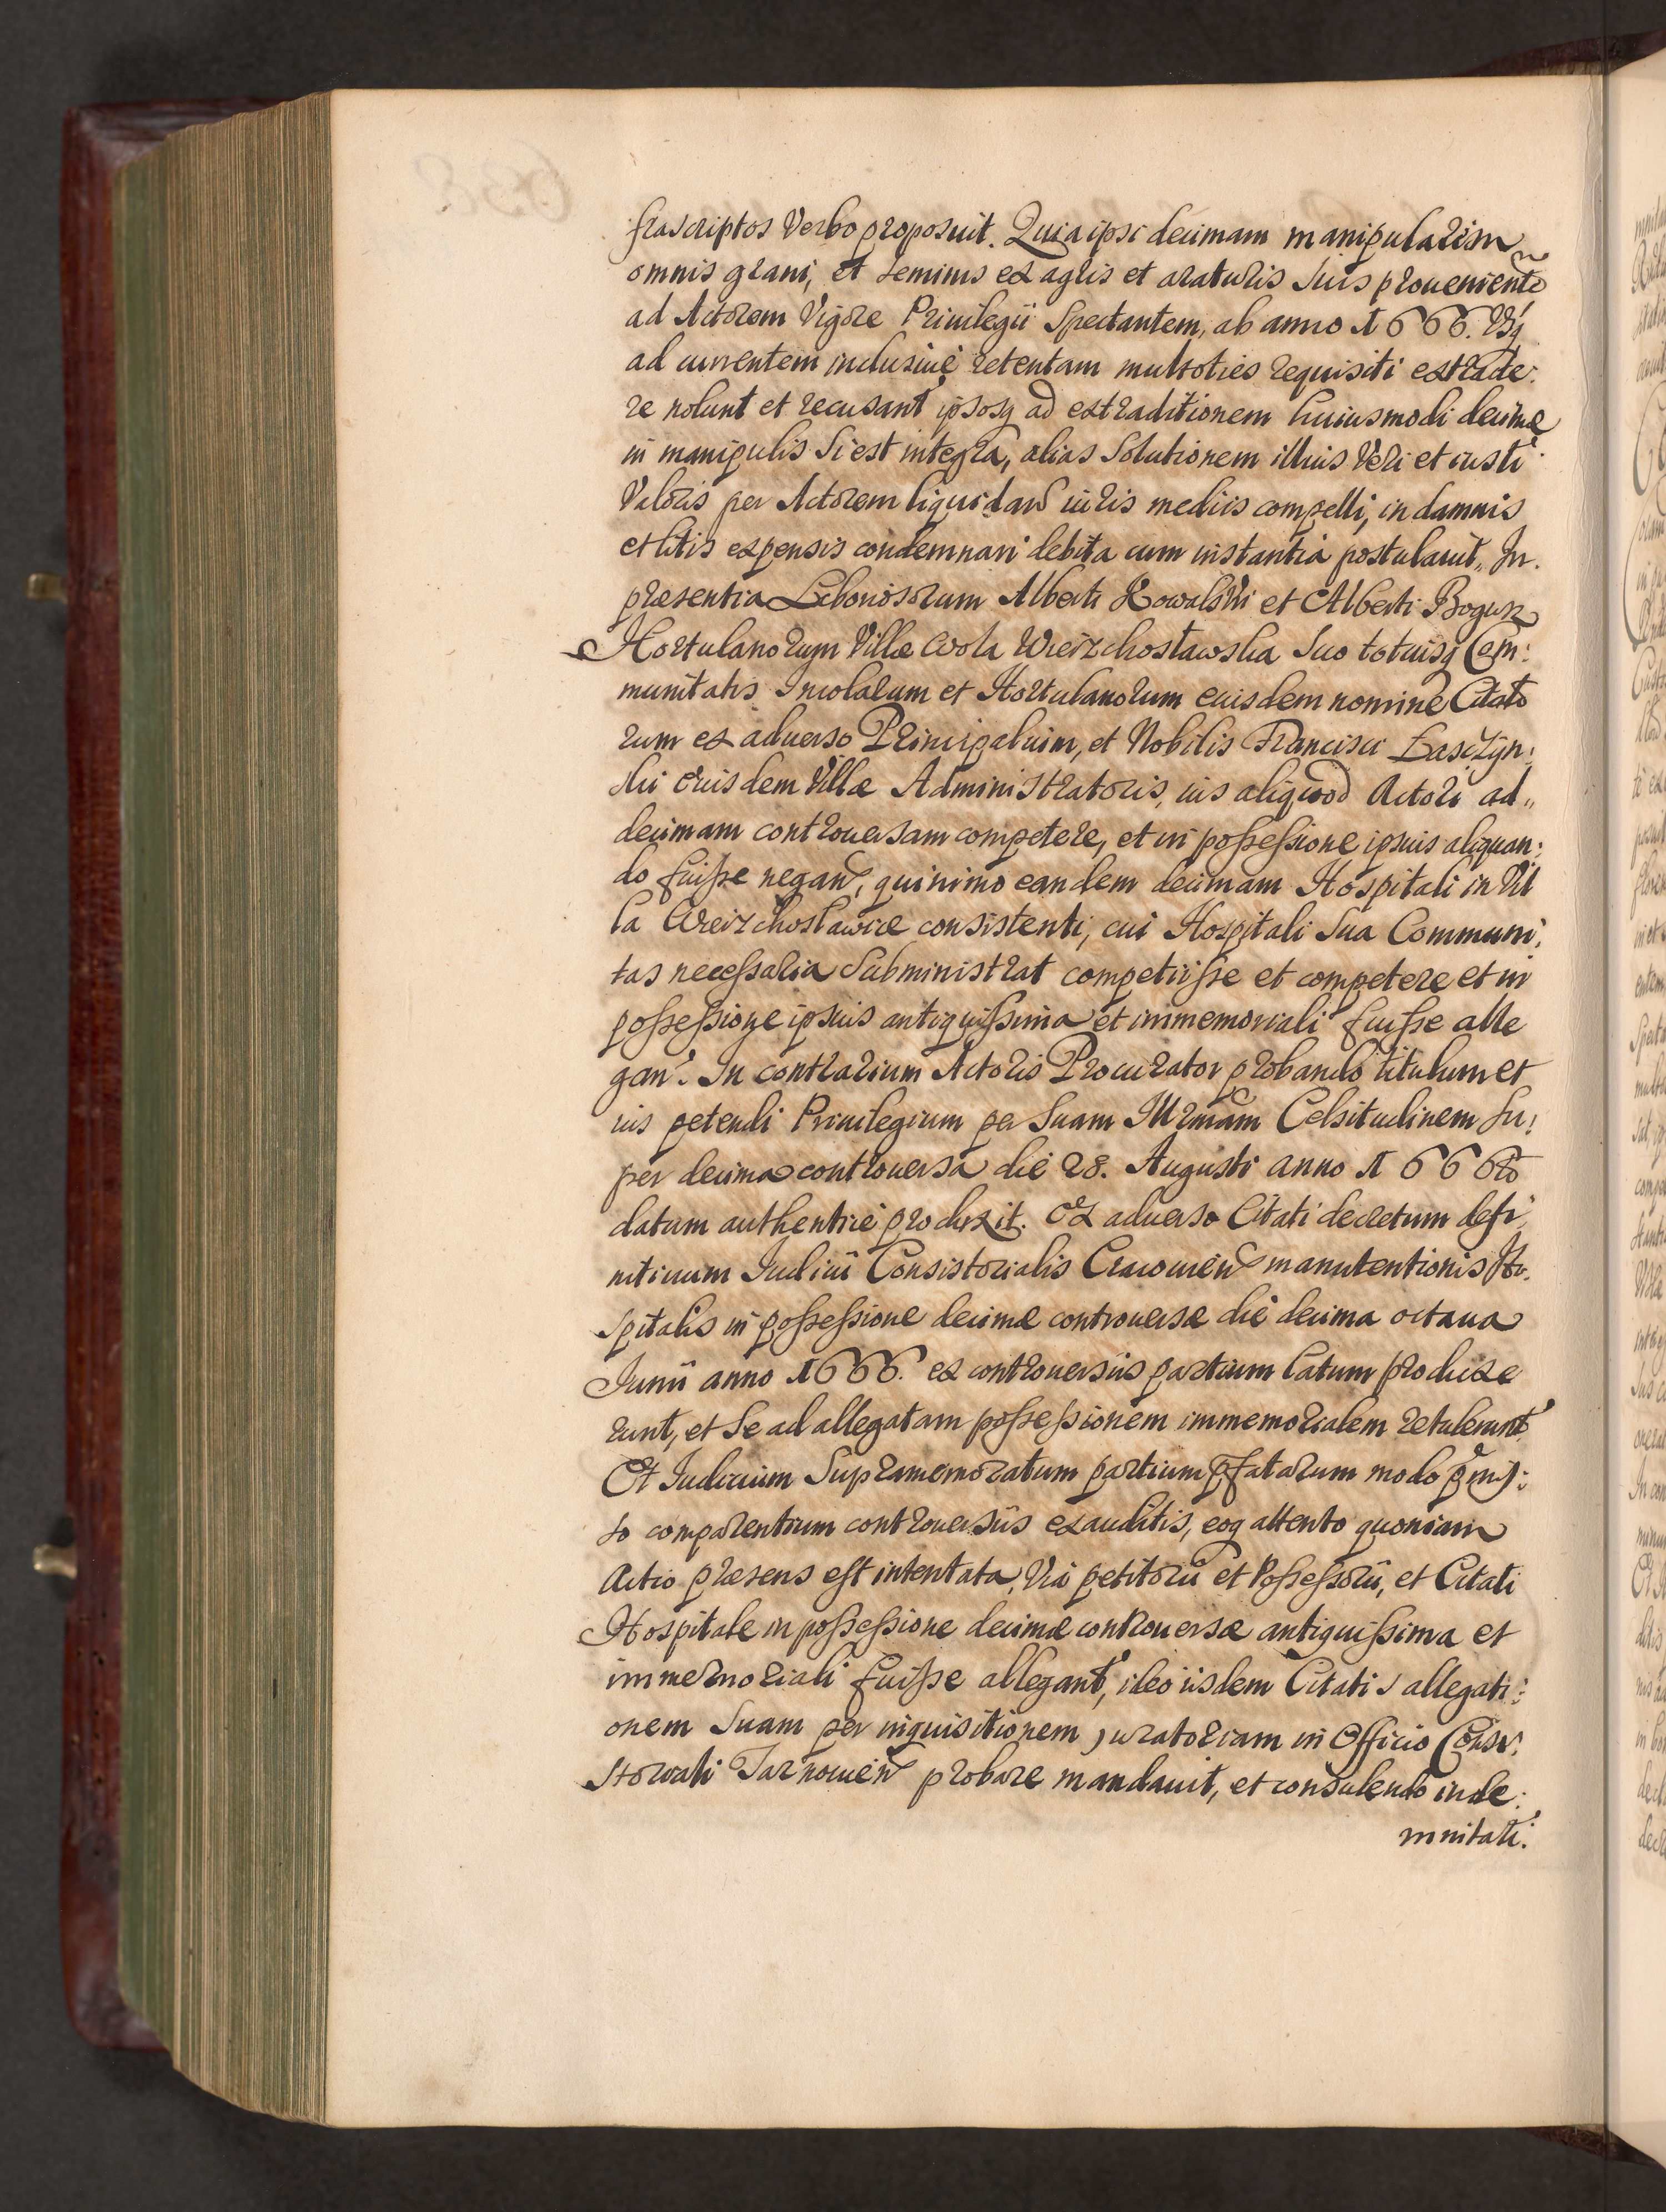 frascriptos Verbo proposuit. Quia ipsi decimam manipularem
omnis grani, et seminis ex agris et araturis suis prouenient͠e
ad Actorem Vigore Priuilegii Spectantem, ab anno 1666. Vsq
ad currentem inclusiuè retentam multoties requisiti extrade:
re nolunt et recusant ipsosq ad extraditionem huiusmodi decimæ
in manipulis si est integra, alias Solutionem illius Veri et iusti
Valoris per Actorem liquidan̄ iuris mediis compelli, in damnis
et litis expensis condemnari debita cum instantia postulauit,, In
præsentia Laboriosorum Alberti Kowalski et Alberti Bogusz
Hortulanorum Villæ Wola Wierzchosławska suo totiusq Com:
munitatis Incolarum et Hortulanorum eiusdem nomine Citato
rum ex aduerso Principalium, et Nobilis Francisci Łasczyn:
ski eiusdem Villæ Administratoris, ius aliquod Actori ad,,
decimam controuersam competere, et in possessione ipsius aliquan:
do fuisse negan̄, quinimo eandem decimam Hospitali in Vil
la Wierzchosławice consistenti, cui Hospitali sua Communi:
tas necessaria subministrat competiisse et competere et in
possessione ipsius antiquissima et immemoriali fuisse alle
gan̄. In contrarium Actoris Procurator probando titulum et
ius petendi Priuilegium per Suam Illr̄mam Celsitudinem Su:
per decima controuersa die 28. Augusti anno 1666to
datum authenticè produxit. Ex aduerso Citati decretum defi
nitiuum Iudicii Consistorialis Cracouien̄ manutentionis Ho:
spitalis in possessione decimæ controuersæ die decima octaua
Iunii anno 1666. ex controuersiis partium latum produxe
runt, et se ad allegatam possessionem immemorialem retulerunt
Et Iudicium Supramemoratum partium p̄fatarum modo p̄mis:
so comparentium controuersiis exauditis, eoq attento quoniam
Actio præsens est intentata, Via petitorii et Possessorii, et Citati
Hospitale in possessione decimæ controuersæ antiquissima et
immemoriali fuisse allegant, ideo iisdem Citatis allegati:
onem suam per inquisitionem juratoriam in Officio Consi:
storiali Tarnouien̄ probare mandauit, et consulendo inde:
mnitati: